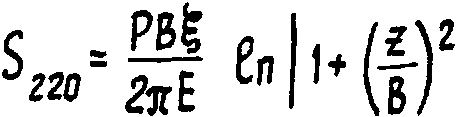 S₂₂₀ = \frac{PBξ}{2πE} ln | 1 + (\frac{z}{B})²